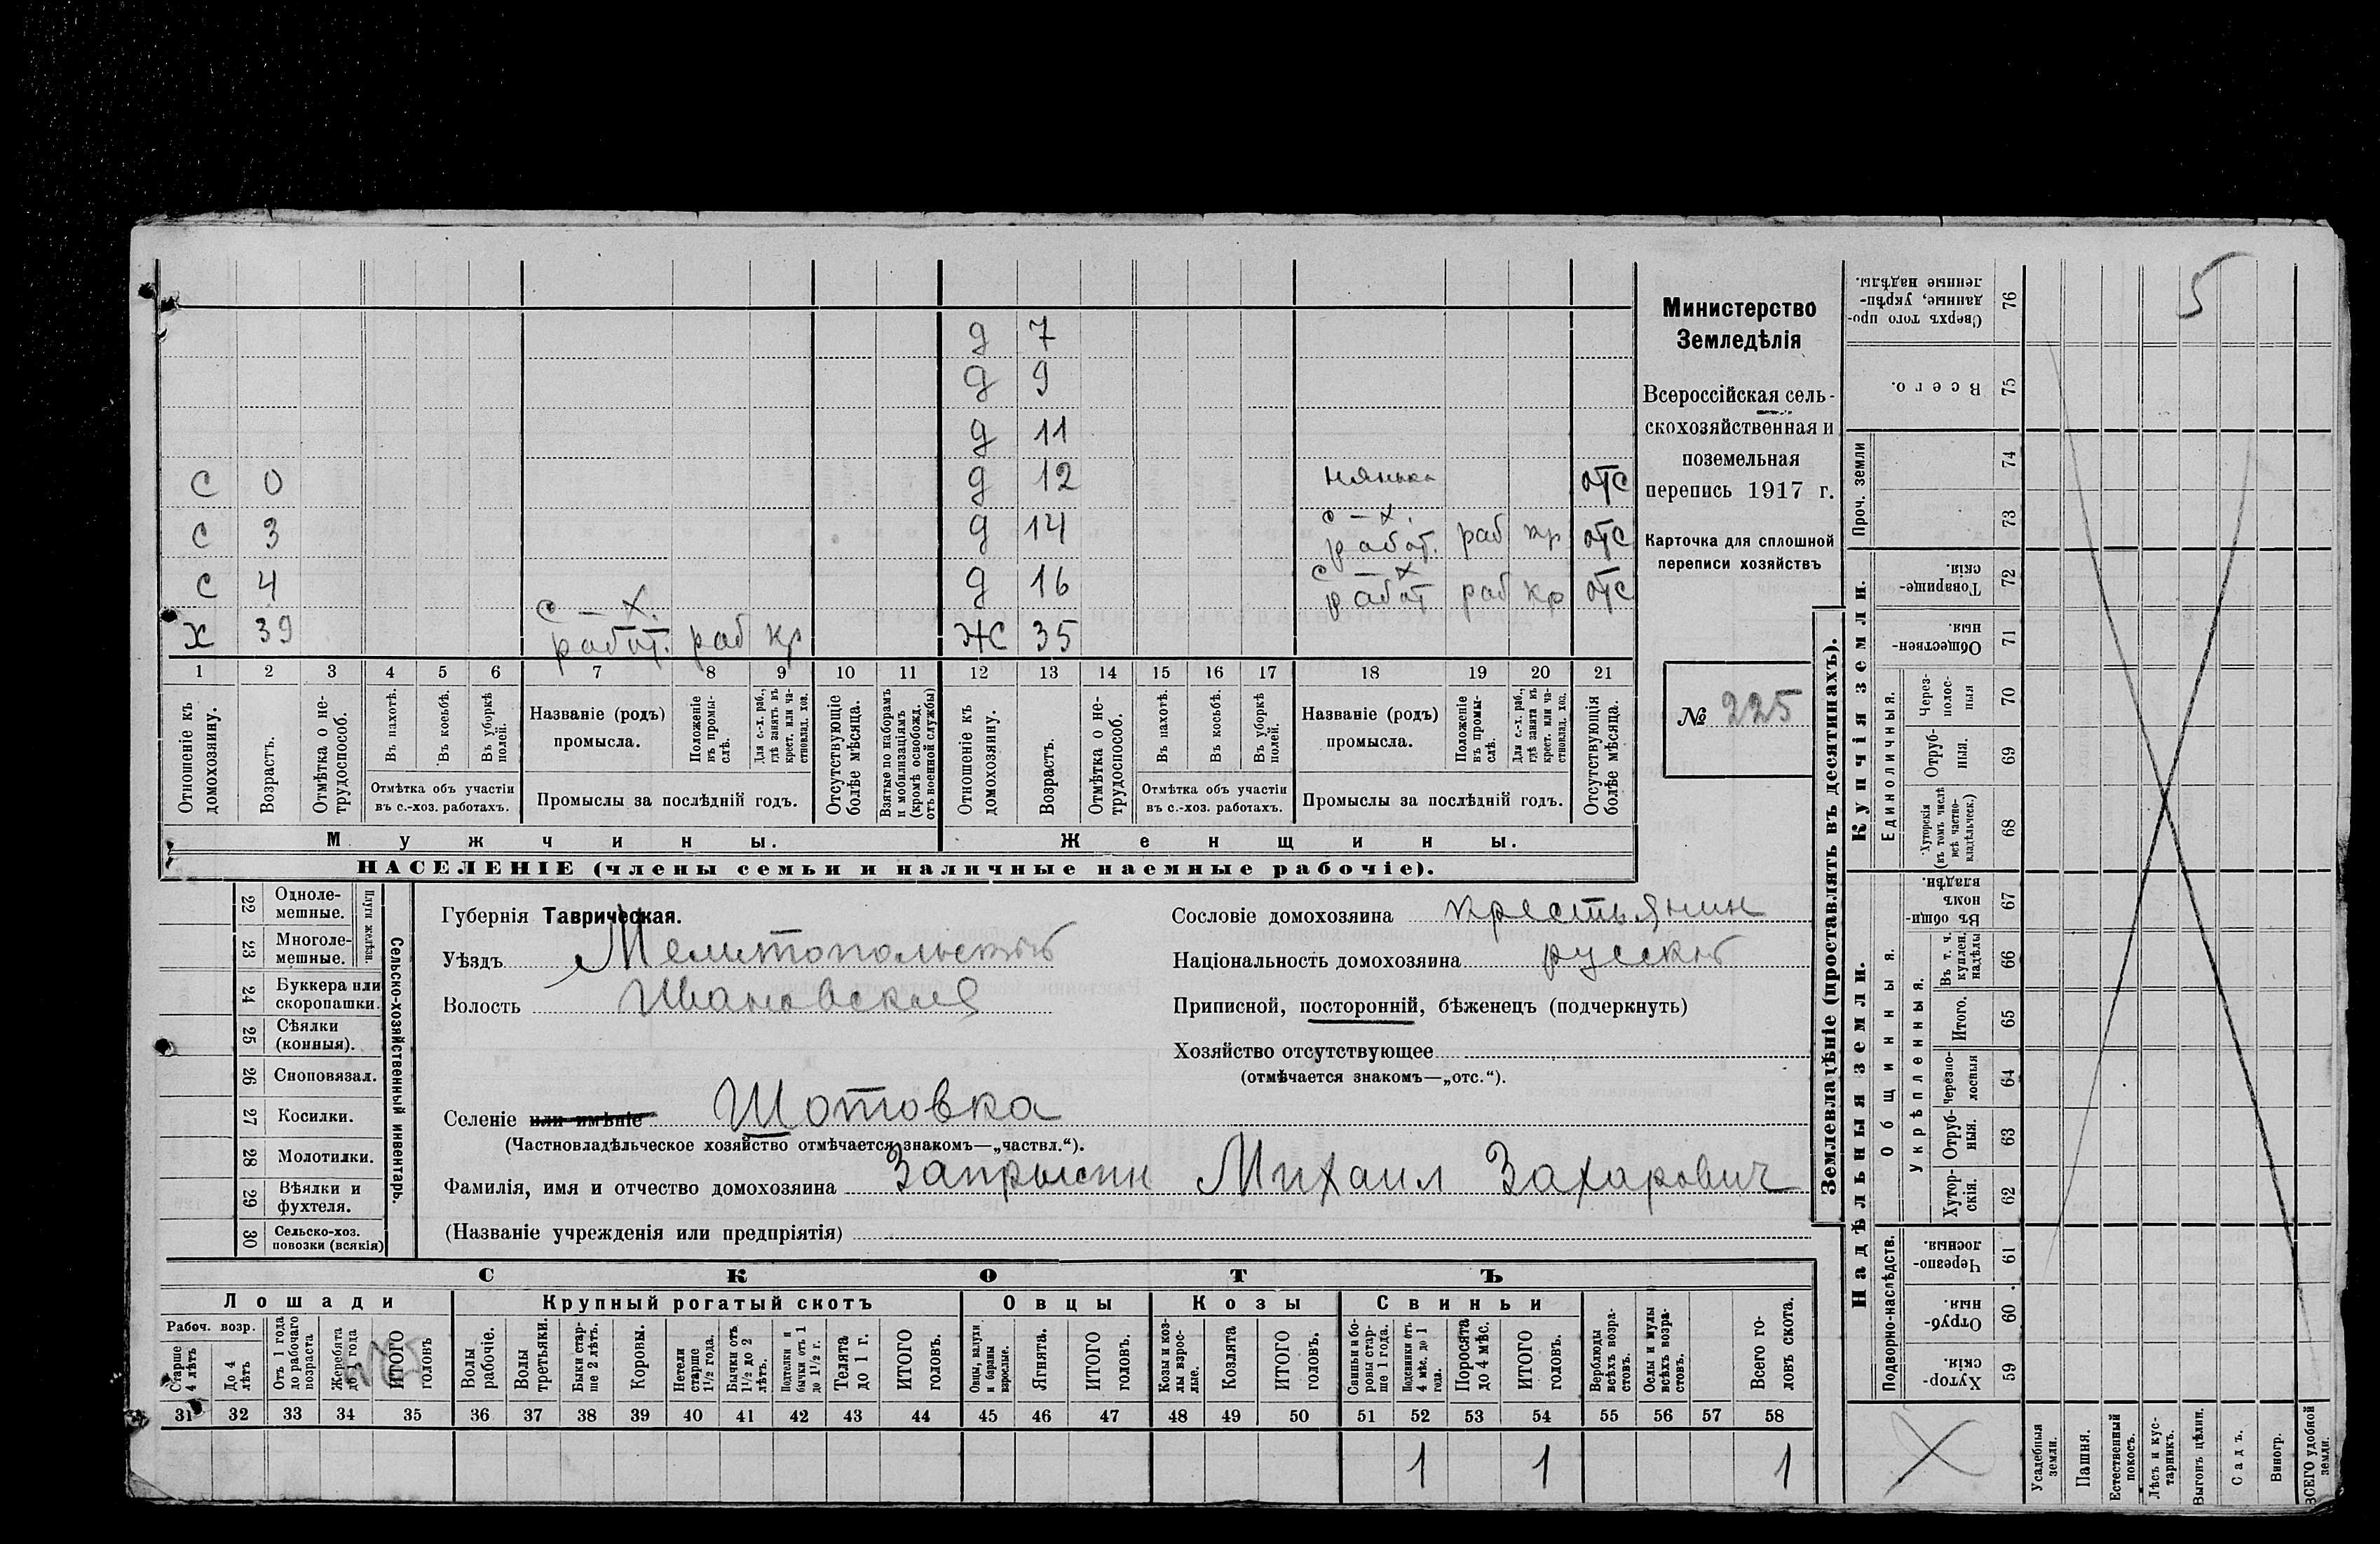 д 7
д 9
д 11
с 0 д 12 нянька отс
с 3 д 14 с–х. работ. раб кр отс
с 4 д 16 с–х работ раб кр отс
х 39 с–х. работ. раб кр Ж 35
1 2 3 4 5 6 7 8 9 10 11 12 13 14 15 16 17 18 19 20 21
Отношеніе къ домохозяину.
Возрастъ.
Отмѣтка о нетрудоспособ.
Въ пахотѣ.
Въ косьбѣ.
Въ уборкѣ полей.
Отмѣтка объ участіи въ с.-хоз. работахъ.
Названіе (родъ) промысла.
Положеніе въ промыслѣ.
Для с.-х. раб., гдѣ занятъ въ крест. или частновлад. хоз.
Промыслы за послѣдній годъ.
Отсутствующіе болѣе мѣсяца.
Взятые по наборамъ и мобилизаціямъ (кромѣ освобожд. отъ военной службы)
Отношеніе къ домохозяину.
Возрастъ.
Отмѣтка о нетрудоспособ.
Въ пахотѣ.
Въ косьбѣ.
Въ уборкѣ полей.
Отмѣтка объ участіи въ с.-хоз. работахъ.
Названіе (родъ) промысла.
Положеніе въ промыслѣ.
Для с.-х. раб., гдѣ занята въ крест. или частновлад. хоз.
Промыслы за послѣдній годъ.
Отсутствующія болѣе мѣсяца.
Мужчины. Женщины.
НАСЕЛЕНІЕ (члены семьи и наличные наемные рабочіе).
Министерство
Земледѣлія
Всероссійская сель-
скохозяйственная и
поземельная
перепись 1917 г.
Карточка для сплошной
переписи хозяйствъ
№ 225
22 Одноле-мешные.
23 Многоле-мешные.
Плуги желѣзн.
24 Буккера или скоропашки.
25 Сѣялки (конныя).
26 Сноповязал.
27 Косилки.
28 Молотилки.
29 Вѣялки и фухтеля.
30 Сельско-хоз. повозки (всякія)
Сельско-хозяйственный инвентарь.
Губернія Таврическая.
Уѣздъ Мелитопольский
Волость Ивановская
Селеніе или имѣніе Шотовка
(Частновладѣльческое хозяйство отмѣчается знакомъ—„частвл.“).
Фамилія, имя и отчество домохозяина Михаил Захарович
(Названіе учрежденія или предпріятія)
Сословіе домохозяина крестьянин
Національность домохозяина русский
Приписной, посторонній, бѣженецъ (подчеркнуть)
Хозяйство отсутствующее
(отмѣчается знакомъ—„отс.“).
СКОТЪ
Лошади Крупный рогатый скотъ Овцы Козы Свиньи
Рабоч. возр.
Старше 4 лѣтъ
До 4 лѣтъ
Отъ 1 года до рабочаго возраста
Жеребята до 1 года
ИТОГО головъ
Волы рабочіе.
Волы третьяки.
Быки старше 2 лѣтъ.
Коровы.
Нетели старше 1½ года.
Бычки отъ 1½ до 2 лѣтъ.
Подтелки и бычки отъ 1 до 1½ г.
Телята до 1 г.
ИТОГО головъ.
Овцы, валухи и бараны взрослые.
Ягнята.
ИТОГО головъ.
Козы и козлы взрослые.
Козлята
ИТОГО головъ.
Свиньи и боровы старше 1 года.
Подсвинки отъ 4 мѣс. до 1 года.
Поросята до 4 мѣс.
ИТОГО головъ.
Верблюды всѣхъ возрастовъ.
Ослы и мулы всѣхъ возрастовъ.
Всего головъ скота.
31 32 33 34 35 36 37 38 39 40 41 42 43 44 45 46 47 48 49 50 51 52 53 54 55 56 57 58
1 1 1
5
Землевладѣніе (проставлять въ десятинахъ).
Купчія земли.
Надѣльныя земли.
Сверхъ того проданные, укрѣпленные надѣлы. 76
Всего. 75
Проч. земли
74
73
Товарищескія. 72
Общественныя. 71
Единоличныя.
Черезполосныя 70
Отрубныя. 69
Хуторскія (въ томъ числѣ всѣ частновладѣльческ.) 68
Общинныя.
Въ общинномъ владѣн. 67
Укрѣпленныя.
Въ т. ч. куплен. надѣлы 66
Итого. 65
Черезполосныя 64
Отрубныя. 63
Хуторскія. 62
Подворно-наслѣдств.
Черезполосныя. 61
Отрубныя. 60
Хуторскія. 59
Усадебныя земли.
Пашня.
Естественный покосъ.
Лѣсъ и кустарникъ.
Выгонъ цѣлин.
Садъ.
Виногр.
ВСЕГО удобной земли.